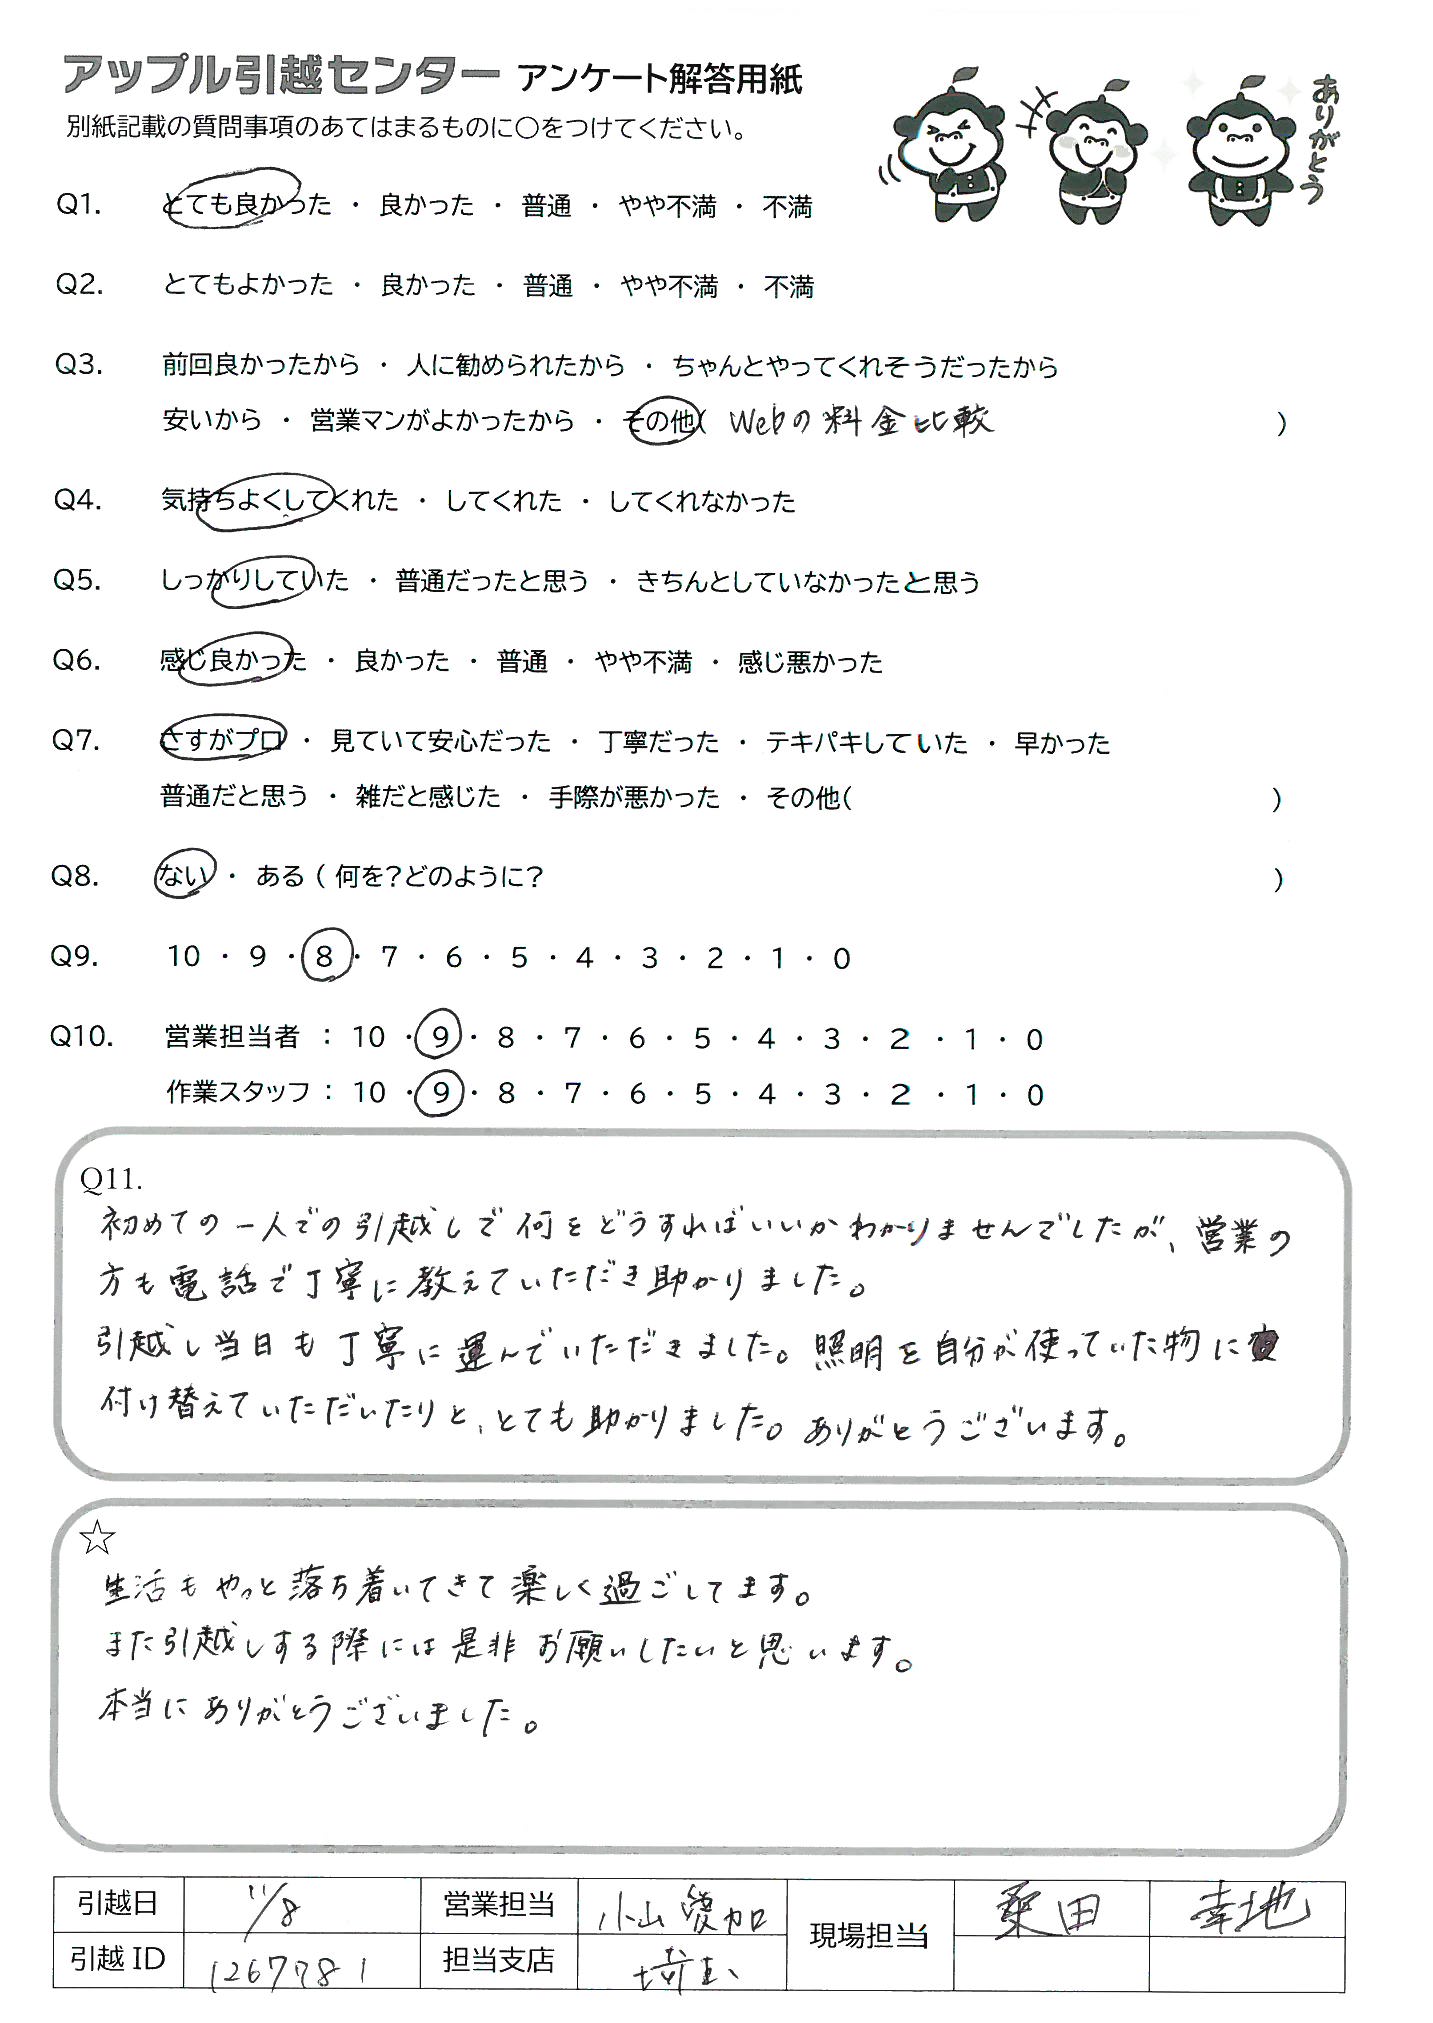 アップル引越センター アンケート解答用紙
別紙記載の質問事項のあてはまるものに○をつけてください。
ありがとう
Q1. とても良かった ・ 良かった ・ 普通 ・ やや不満 ・ 不満
Q2. とてもよかった ・ 良かった ・ 普通 ・ やや不満 ・ 不満
Q3. 前回良かったから ・ 人に勧められたから ・ ちゃんとやってくれそうだったから
安いから ・ 営業マンがよかったから ・ その他( Webの料金比較 )
Q4. 気持ちよくしてくれた ・ してくれた ・ してくれなかった
Q5. しっかりしていた ・ 普通だったと思う ・ きちんとしていなかったと思う
Q6. 感じ良かった ・ 良かった ・ 普通 ・ やや不満 ・ 感じ悪かった
Q7. さすがプロ ・ 見ていて安心だった ・ 丁寧だった ・ テキパキしていた ・ 早かった
普通だと思う ・ 雑だと感じた ・ 手際が悪かった ・ その他( )
Q8. ない ・ ある ( 何を?どのように? )
Q9. 10 ・ 9 ・ 8 ・ 7 ・ 6 ・ 5 ・ 4 ・ 3 ・ 2 ・ 1 ・ 0
Q10. 営業担当者 : 10 ・ 9 ・ 8 ・ 7 ・ 6 ・ 5 ・ 4 ・ 3 ・ 2 ・ 1 ・ 0
作業スタッフ : 10 ・ 9 ・ 8 ・ 7 ・ 6 ・ 5 ・ 4 ・ 3 ・ 2 ・ 1 ・ 0
Q11.
初めての一人での引越しで何をどうすればいいかわかりませんでしたが、営業の
方も電話で丁寧に教えていただき助かりました。
引越し当日も丁寧に運んでいただきました。照明を自分が使っていた物に
付け替えていただいたりと、とても助かりました。ありがとうございます。
☆
生活もやっと落ち着いてきて楽しく過ごしてます。
また引越しする際には是非お願いしたいと思います。
本当にありがとうございました。
引越日 11/8 営業担当 小山愛加 現場担当 桑田 幸地
引越ID 1267781 担当支店 埼玉